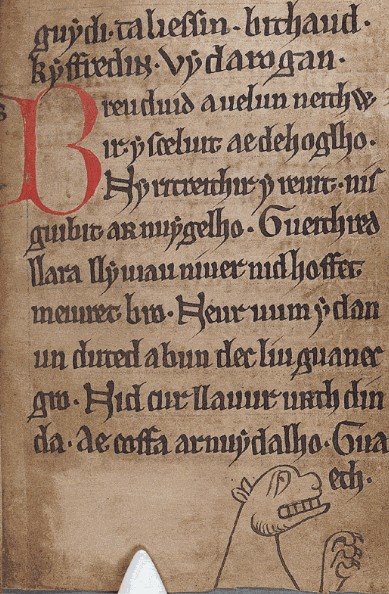 guydi · taliessin · bithaud ·
kyffredin · vy darogan ·
Breuduid a uelun neithw
ir y sceluit ae dehoglho ·
Ny ritreithir y reuit · nis
guibit ar nuygelho · Gueithred
llara llyuiau niuer nid hoffet
meuret bro · Neur uum y dan
un duted a bun dec liu guanec
gro · Nid cur llauur urth din
da · Ae coffa ar nuydalho · Gua
eth ·